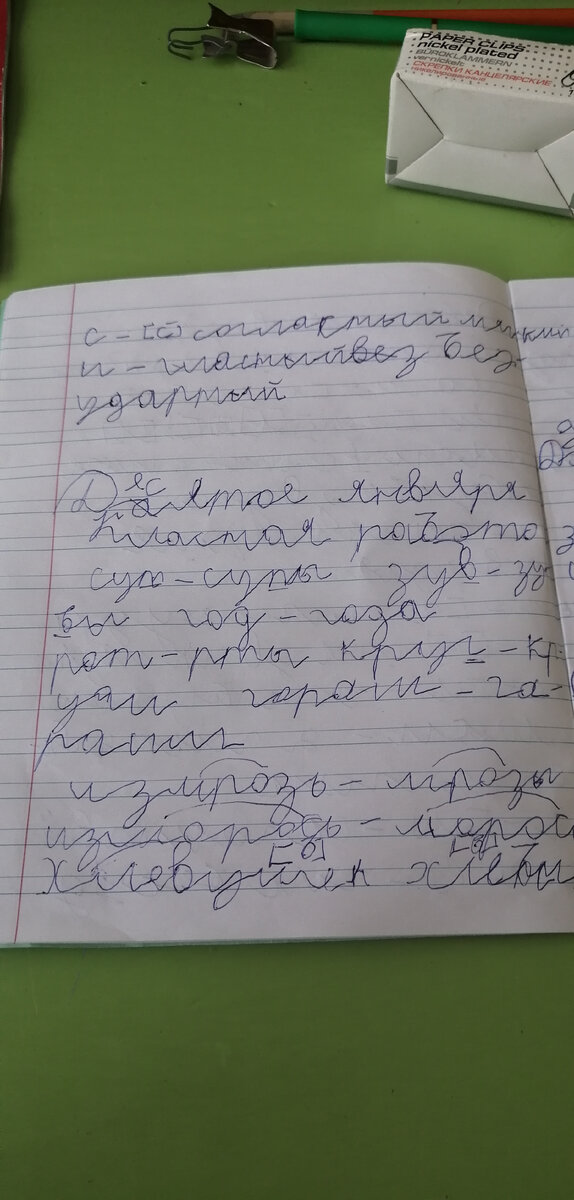 PAPER CLIPS
nickel plated
BÜROKLAMMERN
vernickelt
СКРЕПКИ КАНЦЕЛЯРСКИЕ
никелированные
с - [с] согласный мягкий
и - гласный без без-
ударный
Десятое января
Класная работо
суп - супы зув - зу
бы год - года
рот - рты круг - кр
уги гараш - га-
ращи
измрозь - мрозы
изморозь - мороз
[б] [б]
Хлевушек хлебы